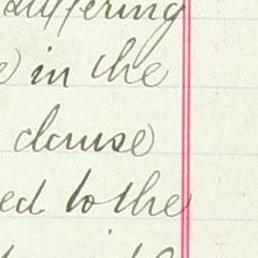 suffering
e) in the
clause
ed to the